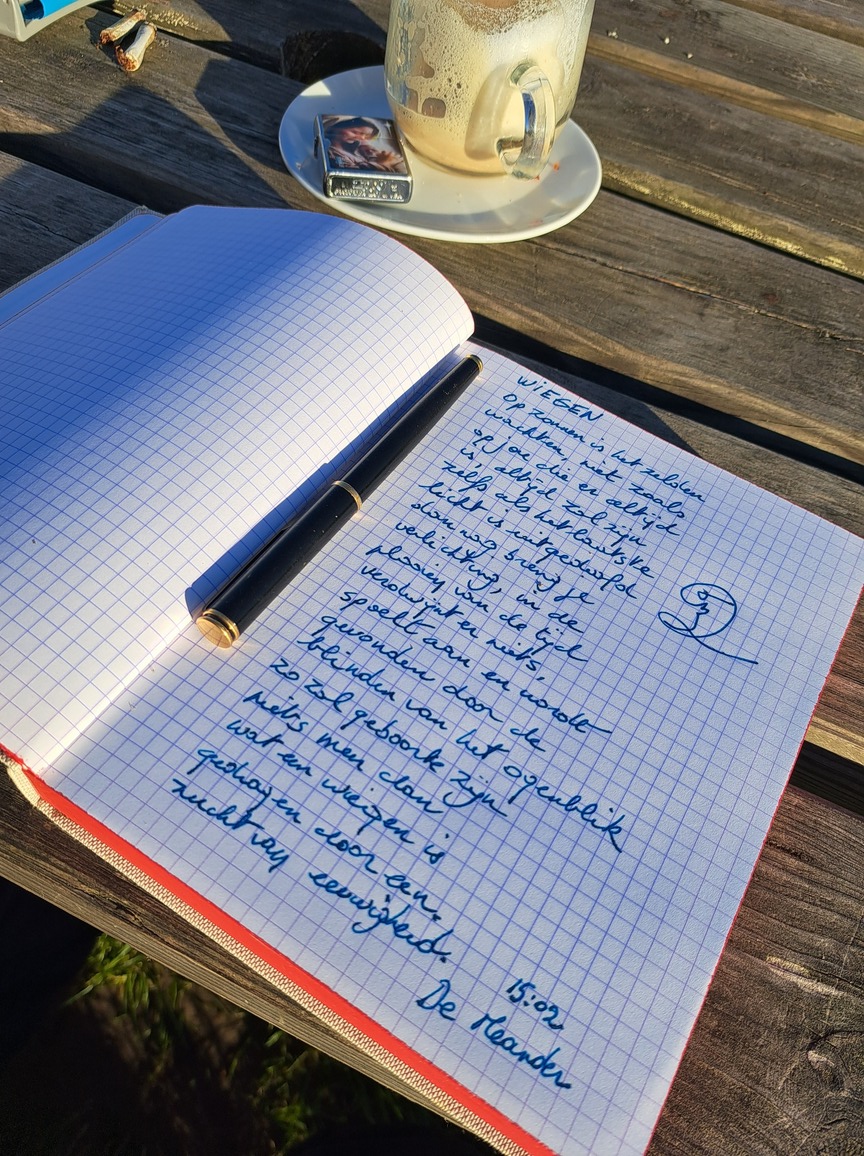 WIEGEN
Op is het zelden
wachten, niet zoals
op jou die er altijd
is, altijd zal zijn
zelfs als het laatste
licht is uitgedoofd
dan nog breng je
verlichting, in de
plooien van de tijd
verdwijnt er niets,
spoelt aan en wordt
gevonden door de
blinden van het ogenblik
zo zal geboorte zijn
niets meer dan
wat een wiegen is
gedragen door een
zucht van eeuwigheid.
15:02
De Meander